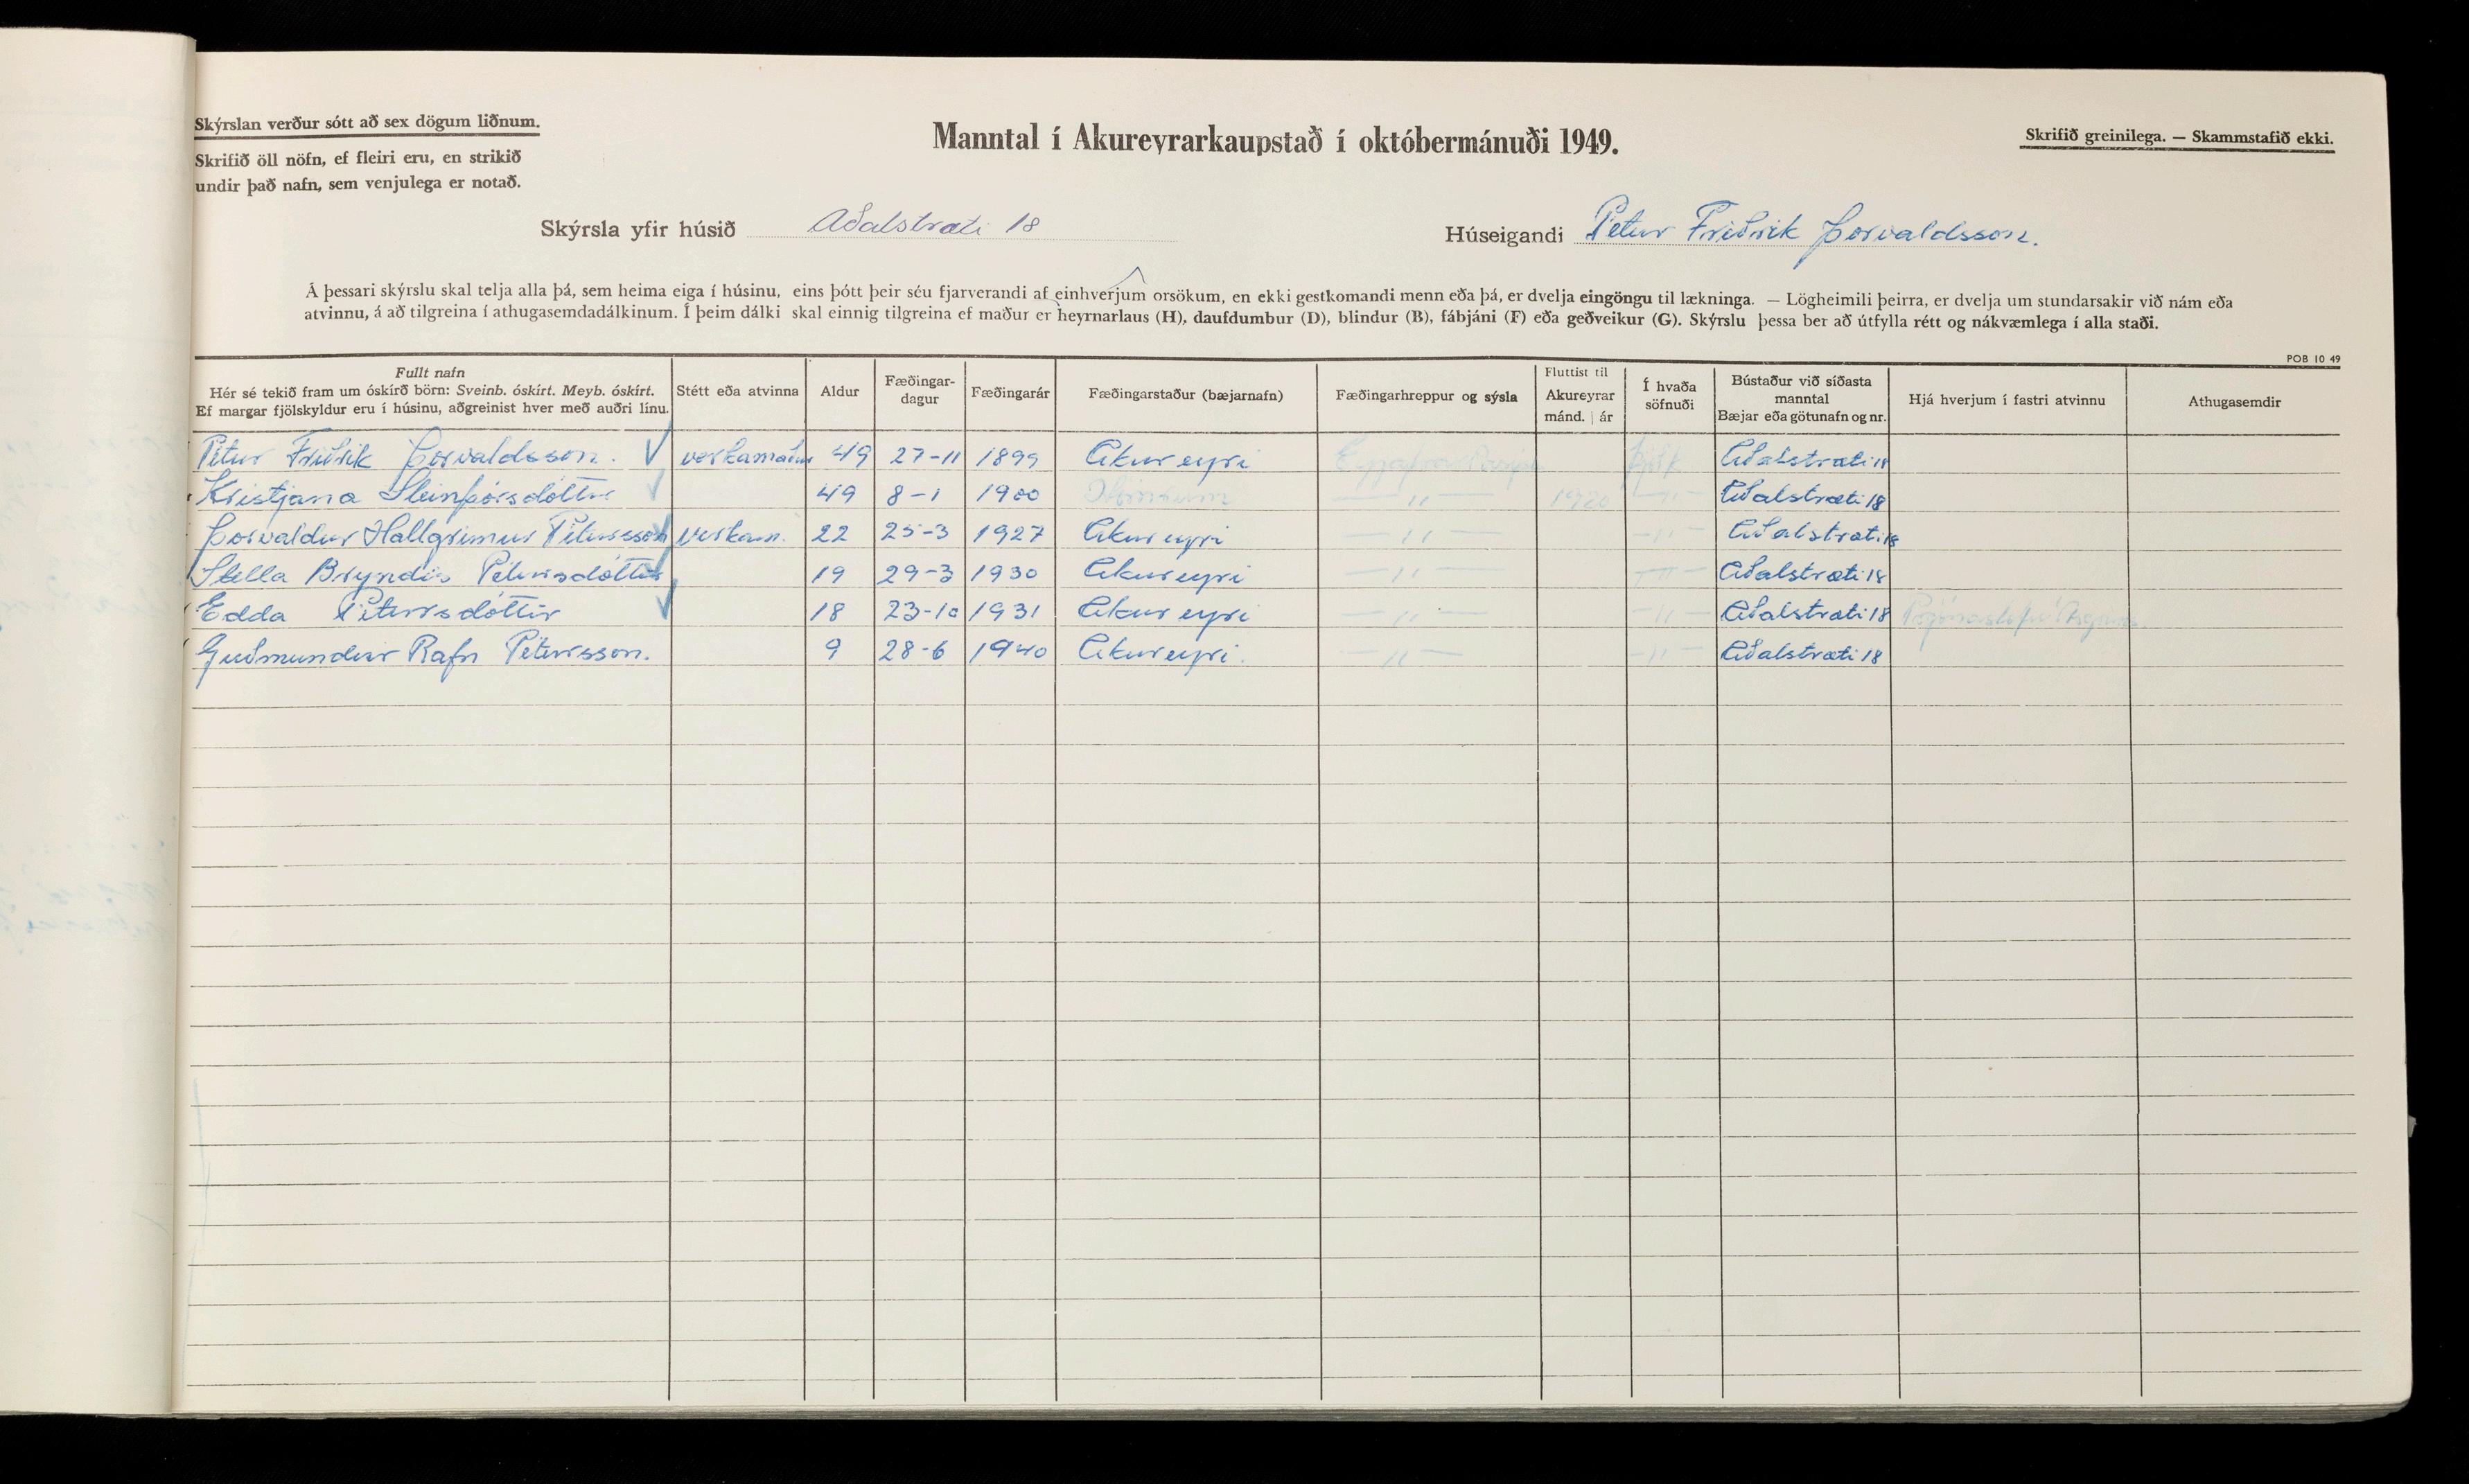 Skýrslan verður sótt að sex dögum liðnum.
Skrifið öll nöfn, ef fleiri eru, en strikið
undir það nafn, sem venjulega er notað.
Manntal í Akureyrarkaupstað í októbermánuði 1949.
Skrifið greinilega. — Skammstafið ekki.
Skýrsla yfir húsið Aðalstræti 18
Húseigandi Pétur Friðrik Þorvaldsson.
Á þessari skýrslu skal telja alla þá, sem heima eiga í húsinu, eins þótt þeir séu fjarverandi af einhverjum orsökum, en ekki gestkomandi menn eða þá, er dvelja eingöngu til lækninga. — Lögheimili þeirra, er dvelja um stundarsakir við nám eða
atvinnu, á að tilgreina í athugasemdadálkinum. Í þeim dálki skal einnig tilgreina ef maður er heyrnarlaus (H), daufdumbur (D), blindur (B), fábjáni (F) eða geðveikur (G). Skýrslu þessa ber að útfylla rétt og nákvæmlega í alla staði.
POB 10 49
Fullt nafn
Hér sé tekið fram um óskírð börn: Sveinb. óskírt. Meyb. óskírt.
Ef margar fjölskyldur eru í húsinu, aðgreinist hver með auðri línu.
Stétt eða atvinna
Aldur
Fæðingar-
dagur
Fæðingarár
Fæðingarstaður (bæjarnafn)
Fæðingarhreppur og sýsla
Fluttist til
Akureyrar
mánd. | ár
Í hvaða
söfnuði
Bústaður við síðasta
manntal
Bæjar eða götunafn og nr.
Hjá hverjum í fastri atvinnu
Athugasemdir
Pétur Friðrik Þorvaldsson. verkamaður 49 27-11 1899 Akureyri Þjóðk Aðalstræti 18
Kristjana Steinþórsdóttir 49 8-1 1900 — " — 1920 — " — Aðalstræti 18
Þorvaldur Hallgrímur Pétursson verkam. 22 25-3 1927 Akureyri — " — — " — Aðalstræti 18
Stella Bryndís Pétursdóttir 19 29-3 1930 Akureyri — " — — " — Aðalstræti 18
Edda Pétursdóttir 18 23-10 1931 Akureyri — " — — " — Aðalstræti 18
Guðmundur Rafn Pétursson. 9 28-6 1940 Akureyri. — " — — " — Aðalstræti 18